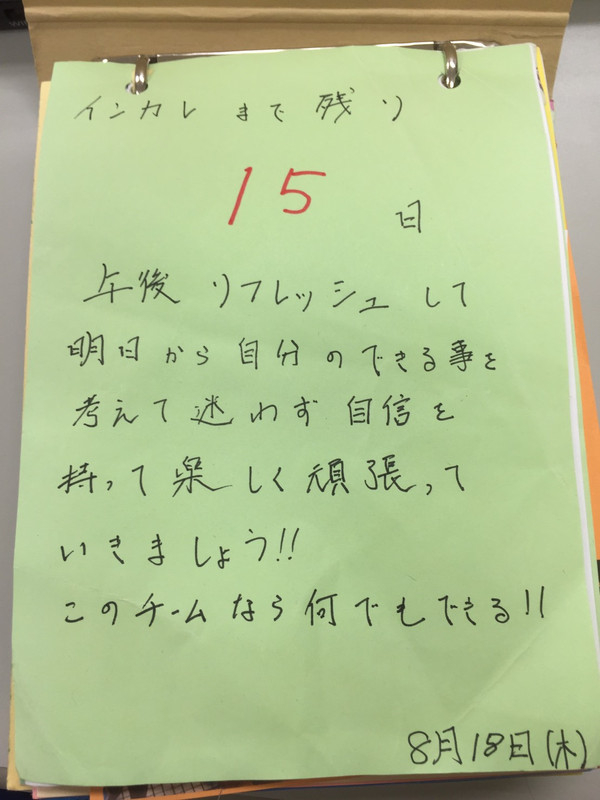 インカレまで残り
15日
午後リフレッシュして
明日から自分のできる事を
考えて迷わず自信を
持って楽しく頑張って
いきましょう!!
このチームなら何でもできる!!
8月18日(木)